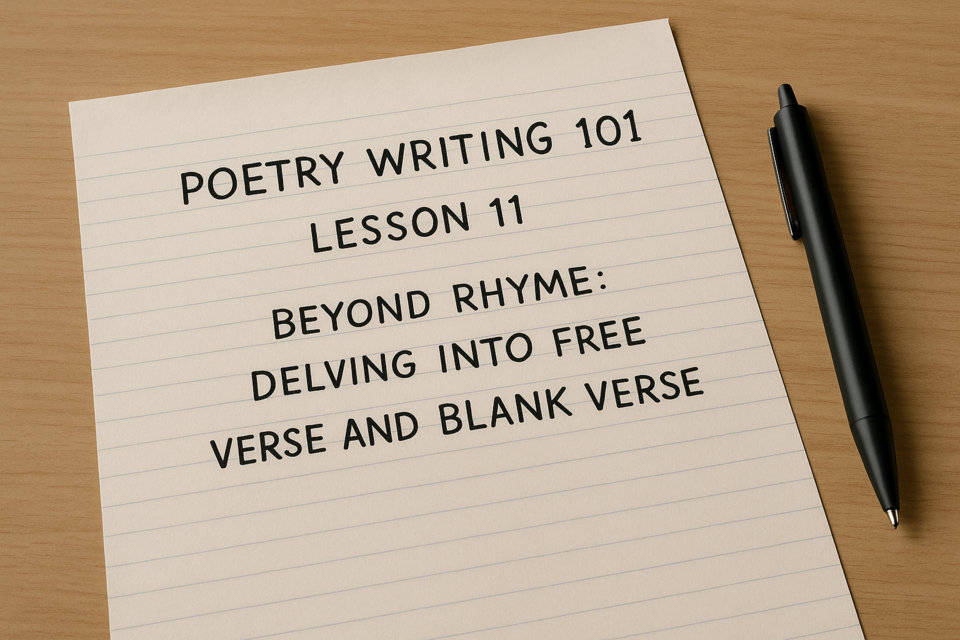 POETRY WRITING 101
LESSON 11
BEYOND RHYME:
DELVING INTO FREE
VERSE AND BLANK VERSE